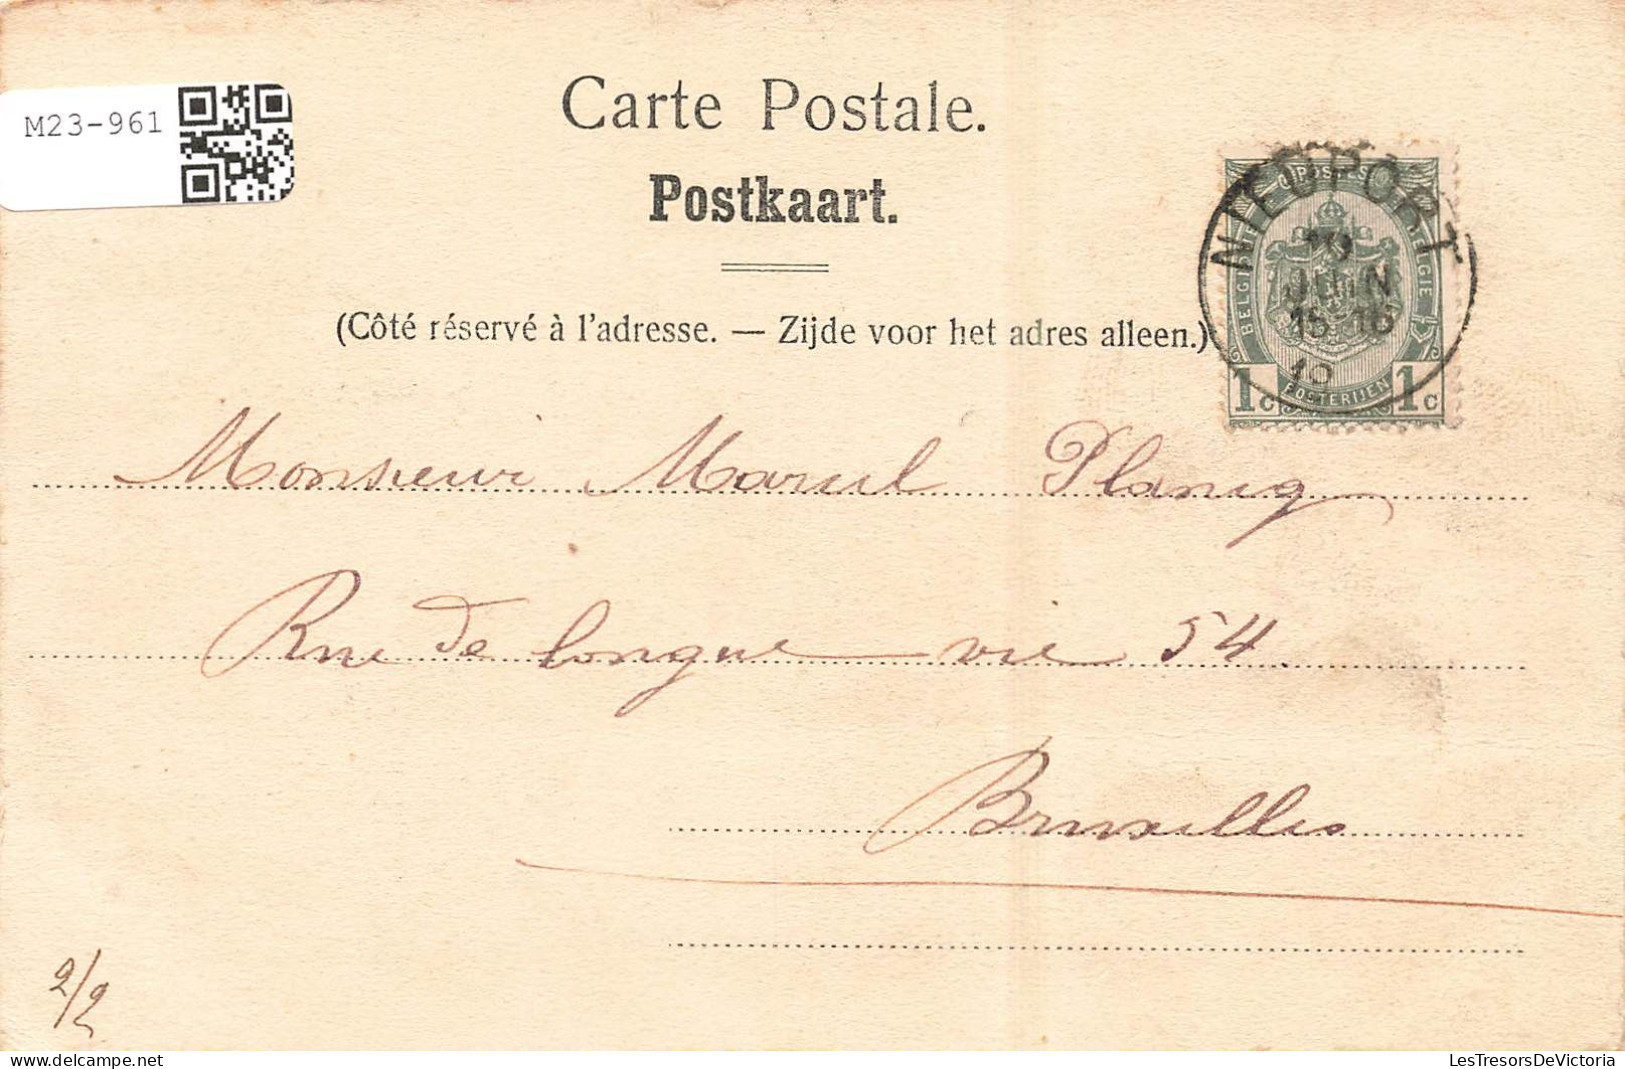 M23-961
Carte Postale.
Postkaart.
(Côté réservé à l'adresse. — Zijde voor het adres alleen.)
NIEUPORT
JUIN
15-16
BELGIQUE POSTES BELGIE
1c POSTERIJEN 1c
Monsieur Marcel
Rue de longue vie 54.
Bruxelles
2/2
delcampe.net
LesTresorsDeVictoria